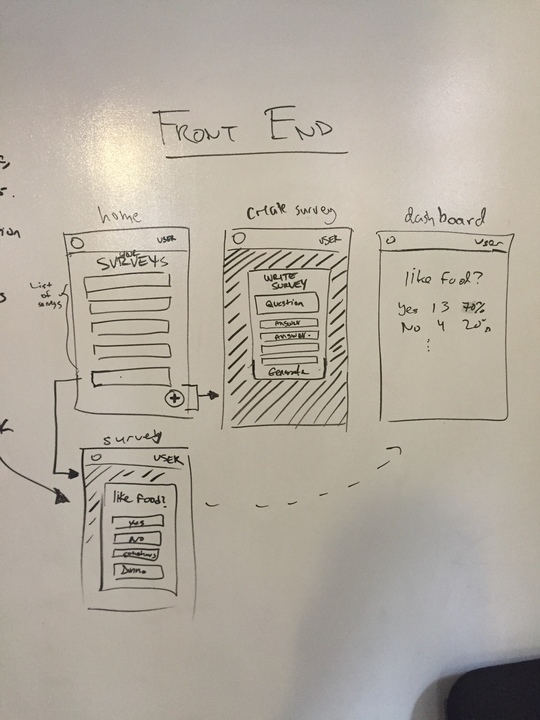 FRONT END
home
USER
YOUR
SURVEYS
List
of
+
create survey
USER
WRITE
SURVEY
Question
Answer
Answer.
Generate
dashboard
User
like food?
Yes 13 70%
No 4 20%
survey
USER
like food?
Yes
No
Dunno